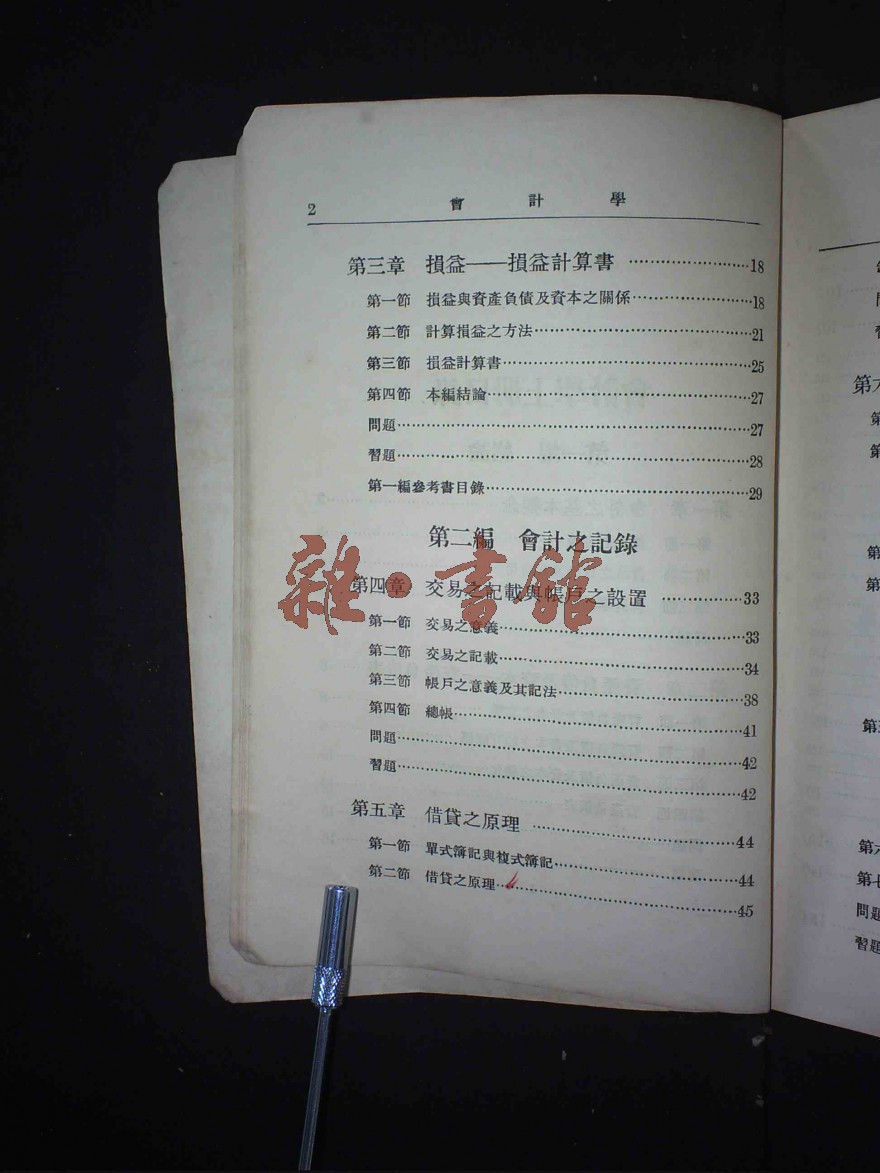 2 會計學
第三章 損益——損益計算書 ……………………18
第一節 損益與資產負債及資本之關係……………………18
第二節 計算損益之方法……………………21
第三節 損益計算書……………………25
第四節 本編結論……………………27
問題……………………27
習題……………………28
第一編參考書目錄……………………29
第二編 會計之記錄
雜·書館
第四章 交易之記載與帳戶之設置 ……………………33
第一節 交易之意義……………………33
第二節 交易之記載……………………34
第三節 帳戶之意義及其記法……………………38
第四節 總帳……………………41
問題……………………42
習題……………………42
第五章 借貸之原理 ……………………44
第一節 單式簿記與複式簿記……………………44
第二節 借貸之原理……………………45